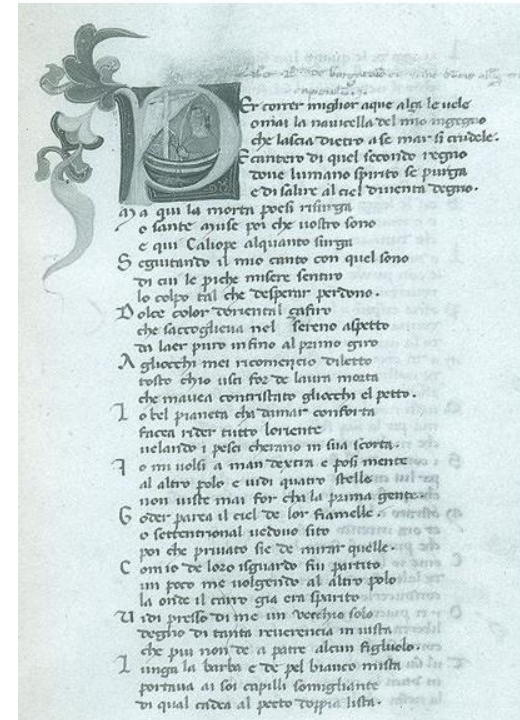 PEr correr miglior aque alça le uele
omai la nauicella del mio ingegno
che lascia dietro a se mar si crudele.
E cantero di quel secondo regno
doue lumano spirito se purga
e di salire al ciel diuenta degno.
Ma qui la morta poesi risurga
o sante muse poi che uostro sono
e qui Caliope alquanto surga
Seguitando il mio canto con quel sono
di cui le piche misere sentiro
lo colpo tal che desperar perdono.
Dolce color doriental çafiro
che saccoglieua nel sereno aspetto
da laer puro infino al primo giro
A gliocchi mei ricomencio diletto
tosto chio usci for de laura morta
che mauea contristato gliocchi el petto.
Lo bel pianeta chadamar conforta
facea rider tutto loriente
uelando i pesci cherano in sua scorta.
Io mi uolsi a man dextra e posi mente
al altro polo e uidi quatro stelle
non uiste mai for cha la prima gente.
Goder parea il ciel de lor fiamelle.
o settentrional uedouo sito
poi che priuato sie de mirar quelle.
Com io de loro isguardo fui partito
un poco me uolgendo al altro polo
la onde il carro gia era sparito
Uidi presso di me un uecchio solo
degno di tanta reuerencia in uista
che piu non de a patre alcun figluolo.
Lunga la barba e de pel bianco mista
portaua ai soi capilli somigliante
di qual cadea al petto doppia lista.